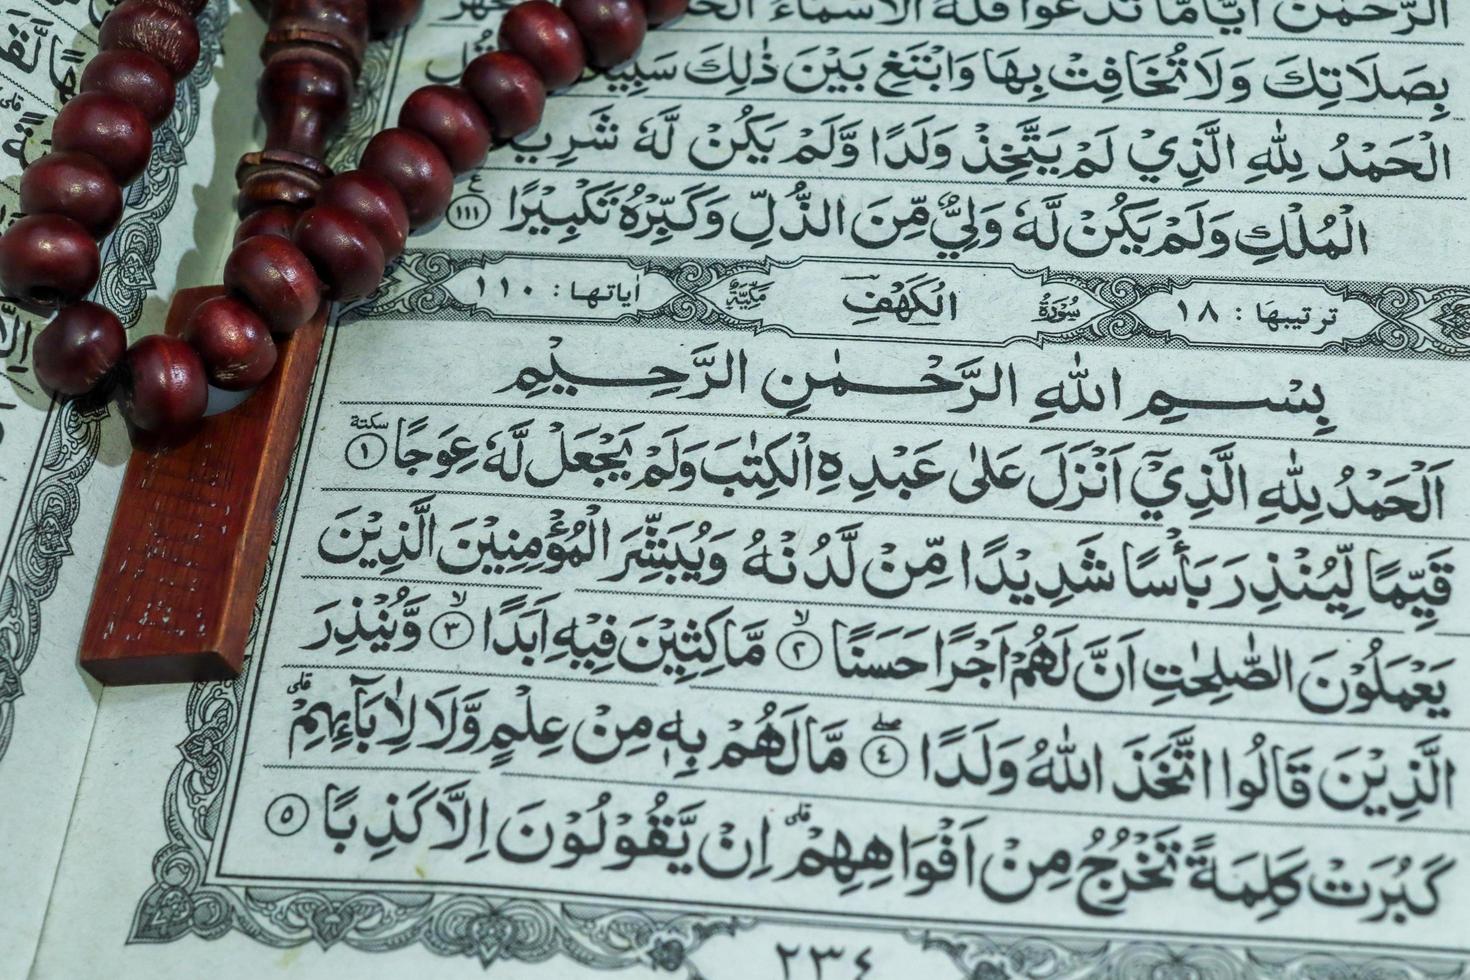 الرَّحْمٰنَ اَيًّامَّا تَدْعُوا فَلَهُ الْاَسْمَاءُ
بِصَلَاتِكَ وَلَا تُخَافِتْ بِهَا وَابْتَغِ بَيْنَ ذٰلِكَ
الْحَمْدُ لِلّٰهِ الَّذِيْ لَمْ يَتَّخِذْ وَلَدًا وَّلَمْ يَكُنْ لَّهٗ
الْمُلْكِ وَلَمْ يَكُنْ لَّهٗ وَلِيٌّ مِّنَ الذُّلِّ وَكَبِّرْهُ تَكْبِيْرًا ١١١
ترتيبها : ١٨ سُوْرَةُ الْكَهْفِ مَكِّيَّةٌ اٰياتها : ١١٠
بِسْمِ اللّٰهِ الرَّحْمٰنِ الرَّحِيْمِ
اَلْحَمْدُ لِلّٰهِ الَّذِيْٓ اَنْزَلَ عَلٰى عَبْدِهِ الْكِتٰبَ وَلَمْ يَجْعَلْ لَّهٗ عِوَجًا سكتة ١
قَيِّمًا لِّيُنْذِرَ بَأْسًا شَدِيْدًا مِّنْ لَّدُنْهُ وَيُبَشِّرَ الْمُؤْمِنِيْنَ الَّذِيْنَ
يَعْمَلُوْنَ الصّٰلِحٰتِ اَنَّ لَهُمْ اَجْرًا حَسَنًا ۙ ٢ مَّاكِثِيْنَ فِيْهِ اَبَدًا ۙ ٣ وَّيُنْذِرَ
الَّذِيْنَ قَالُوا اتَّخَذَ اللّٰهُ وَلَدًا ٤ مَّا لَهُمْ بِهٖ مِنْ عِلْمٍ وَّلَا لِاٰبَآئِهِمْ ۗ
كَبُرَتْ كَلِمَةً تَخْرُجُ مِنْ اَفْوَاهِهِمْ ۗ اِنْ يَّقُوْلُوْنَ اِلَّا كَذِبًا ٥
٢٣٤